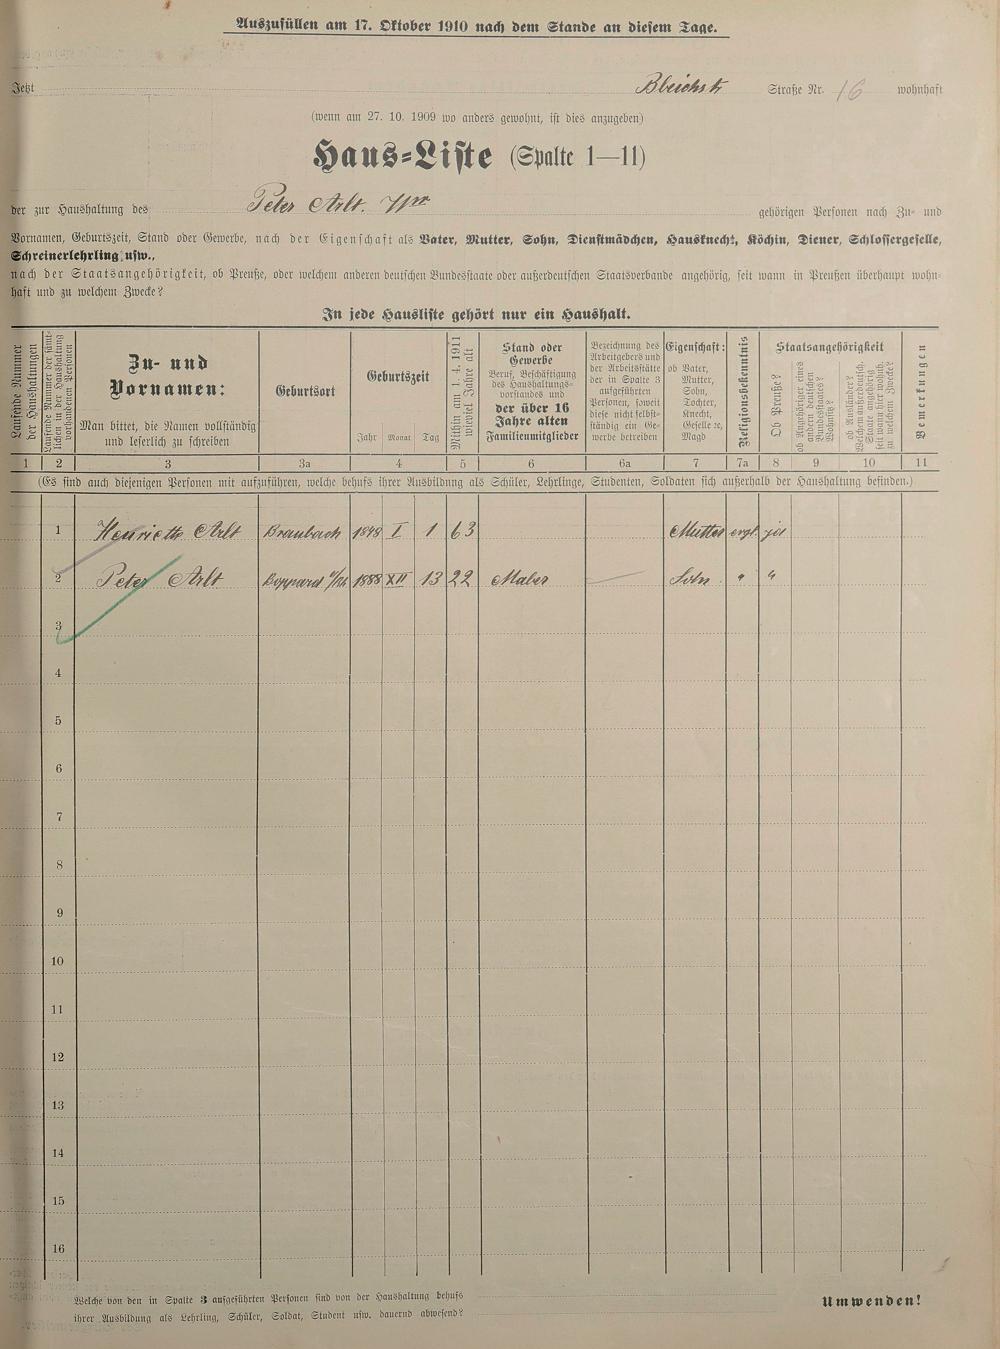 Auszufüllen am 17. Oktober 1910 nach dem Stande an diesem Tage.
Jetzt Bleichstr Straße Nr. 16 wohnhaft
(wenn am 27. 10. 1909 wo anders gewohnt, ist dies anzugeben)
Haus=Liste (Spalte 1—11)
der zur Haushaltung des Peter Arlt. gehörigen Personen nach Zu= und
Vornamen, Geburtszeit, Stand oder Gewerbe, nach der Eigenschaft als Vater, Mutter, Sohn, Dienstmädchen, Hausknecht, Köchin, Diener, Schlossergeselle,
Schreinerlehrling usw.,
nach der Staatsangehörigkeit, ob Preuße, oder welchem anderen deutschen Bundesstaate oder außerdeutschen Staatsverbande angehörig, seit wann in Preußen überhaupt wohn=
haft und zu welchem Zwecke?
In jede Hausliste gehört nur ein Haushalt.
Laufende Nummer
der Haushaltungen
Laufende Nummer der sämt=
lichen in der Haushaltung
vorhandenen Personen
Zu= und
Vornamen:
Man bittet, die Namen vollständig
und leserlich zu schreiben
Geburtsort
Geburtszeit
Jahr Monat Tag
Mithin am 1. 4. 1911
wieviel Jahre alt
Stand oder
Gewerbe
Beruf, Beschäftigung
des Haushaltungs=
vorstandes und
der über 16
Jahre alten
Familienmitglieder
Bezeichnung des
Arbeitgebers und
der Arbeitsstätte
der in Spalte 3
aufgeführten
Personen, soweit
diese nicht selbst=
ständig ein Ge=
werbe betreiben
Eigenschaft:
ob Vater,
Mutter,
Sohn,
Tochter,
Knecht,
Geselle ꝛc,
Magd
Religionsbekenntnis
Staatsangehörigkeit
Ob Preuße?
ob Angehöriger eines
andern deutschen
Bundesstaates?
Wohnsitz?
ob Ausländer?
Welchem außerdeutsch.
Staate angehörig
seit wann hier wohnh.
zu welchem Zwecke?
Bemerkungen
1 2 3 3a 4 5 6 6a 7 7a 8 9 10 11
(Es sind auch diejenigen Personen mit aufzuführen, welche behufs ihrer Ausbildung als Schüler, Lehrlinge, Studenten, Soldaten sich außerhalb der Haushaltung befinden.)
1 Henriette Arlt Braubach 1848 I 1 63 Mutter evgl. ja
2 Peter Arlt Boppard a/Rh 1888 XII 13 22 Maler Sohn " "
3
4
5
6
7
8
9
10
11
12
13
14
15
16
Welche von den in Spalte 3 aufgeführten Personen sind von der Haushaltung behufs
ihrer Ausbildung als Lehrling, Schüler, Soldat, Student usw. dauernd abwesend?
Umwenden!